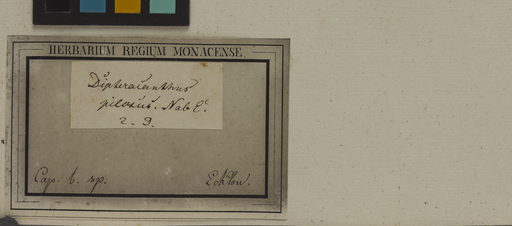 HERBARIUM REGIUM MONACENSE.
Dipteracanthus
pilosus. Nab E.
2. 9.
Cap. b. sp. Ecklon.